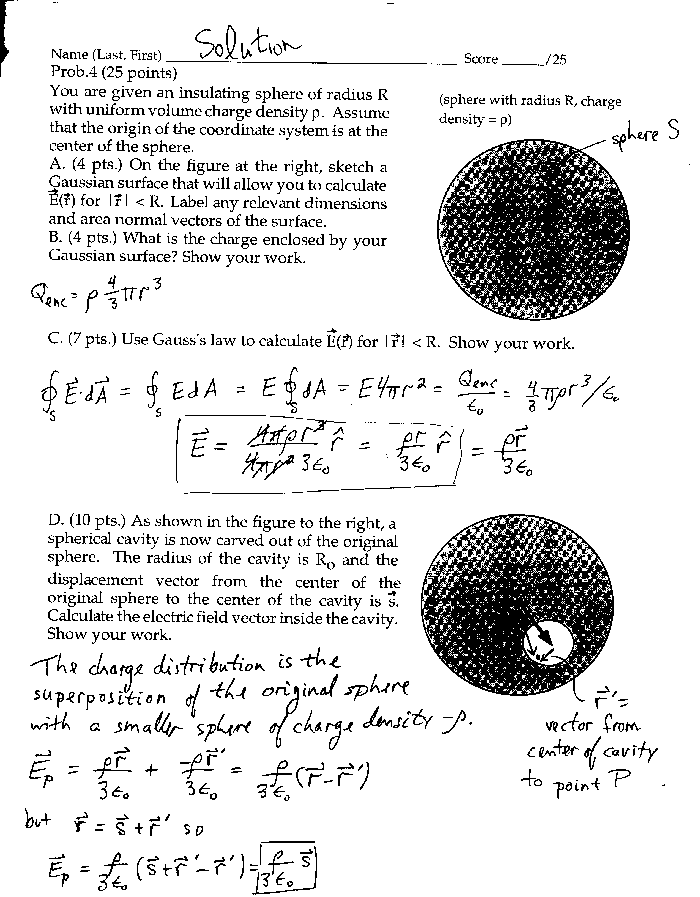 Name (Last, First) Solution Score /25
Prob.4 (25 points)
You are given an insulating sphere of radius R
with uniform volume charge density ρ. Assume
that the origin of the coordinate system is at the
center of the sphere.
A. (4 pts.) On the figure at the right, sketch a
Gaussian surface that will allow you to calculate
E⃗(r⃗) for |r⃗| < R. Label any relevant dimensions
and area normal vectors of the surface.
B. (4 pts.) What is the charge enclosed by your
Gaussian surface? Show your work.
(sphere with radius R, charge
density = ρ)
sphere S
Qenc = ρ 4/3 πr³
C. (7 pts.) Use Gauss's law to calculate E⃗(r⃗) for |r⃗| < R. Show your work.
∮s E⃗·dA⃗ = ∮s EdA = E∮s dA = E4πr² = Qenc/ε₀ = 4/3 πρr³/ε₀
E⃗ = 4πρr³/4πr² 3ε₀ r̂ = ρr/3ε₀ r̂ = ρr⃗/3ε₀
D. (10 pts.) As shown in the figure to the right, a
spherical cavity is now carved out of the original
sphere. The radius of the cavity is R₀ and the
displacement vector from the center of the
original sphere to the center of the cavity is s⃗.
Calculate the electric field vector inside the cavity.
Show your work.
The charge distribution is the
superposition of the original sphere
with a smaller sphere of charge density -ρ.
r⃗' =
vector from
center of cavity
to point P
E⃗p = ρr⃗/3ε₀ + -ρr⃗'/3ε₀ = ρ/3ε₀ (r⃗-r⃗')
but r⃗ = s⃗ + r⃗' so
E⃗p = ρ/3ε₀ (s⃗+r⃗'-r⃗') = ρ/3ε₀ s⃗